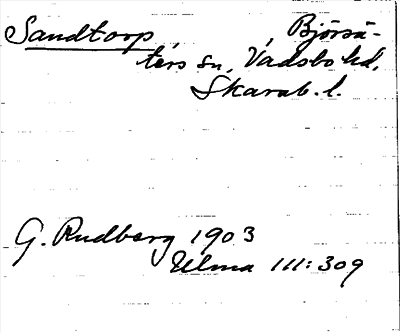 Sandtorp, Björsä-
ters sn, Vadsbo hd,
Skarab. l.
G. Rudberg 1903
Ulma 111:309